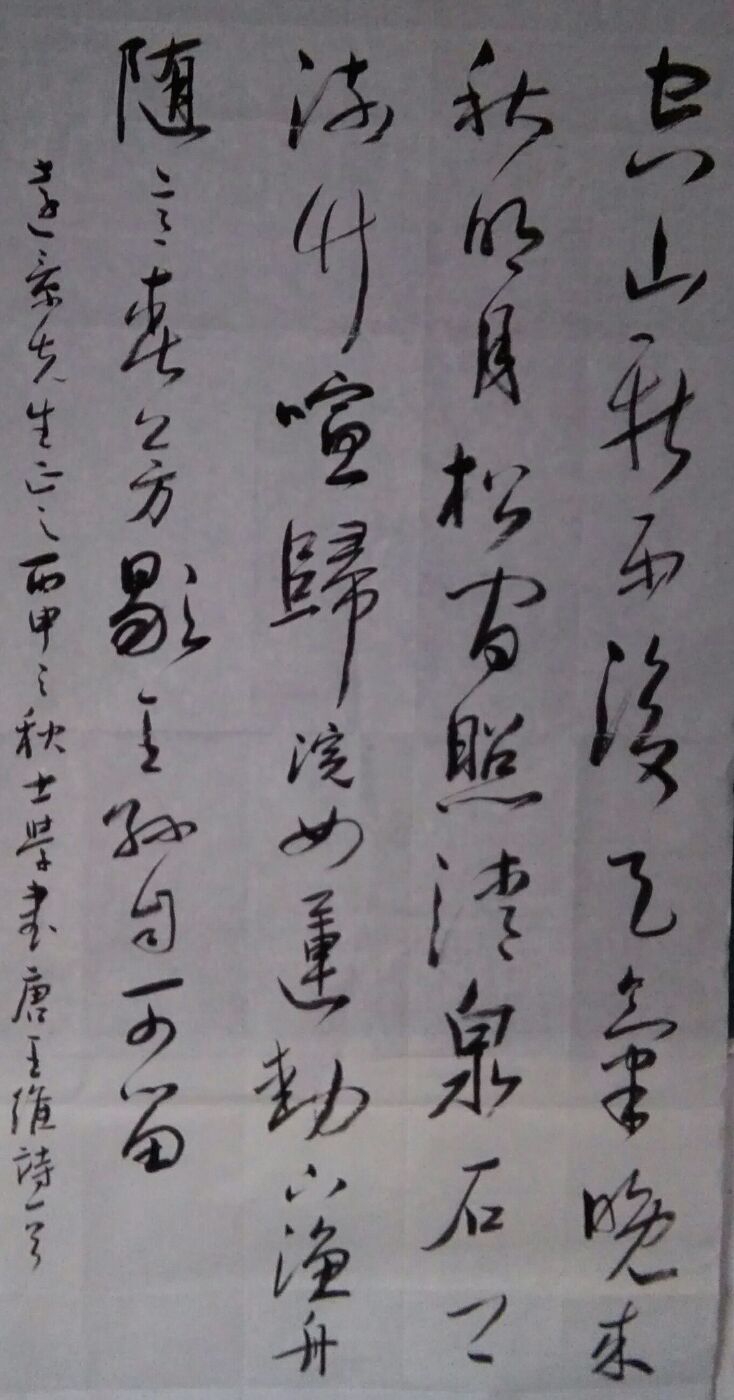 空山新雨後天氣晚来
秋明月松间照清泉石上
流竹喧歸浣女蓮動下漁舟
随意春芳歇王孫自可留
遠景先生正之丙申之秋士学書唐王維詩一首